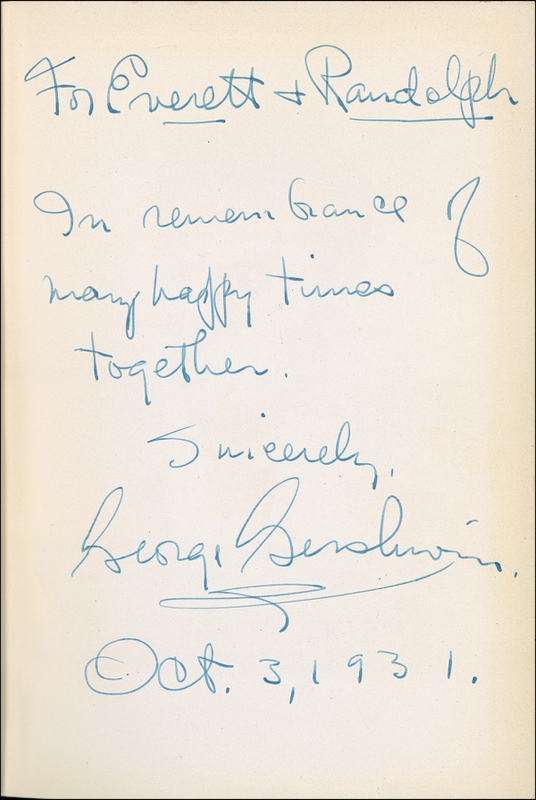 For Everett + Randolph
In remembrance of
many happy times
together.
Sincerely,
George Gershwin.
Oct. 3, 1931.